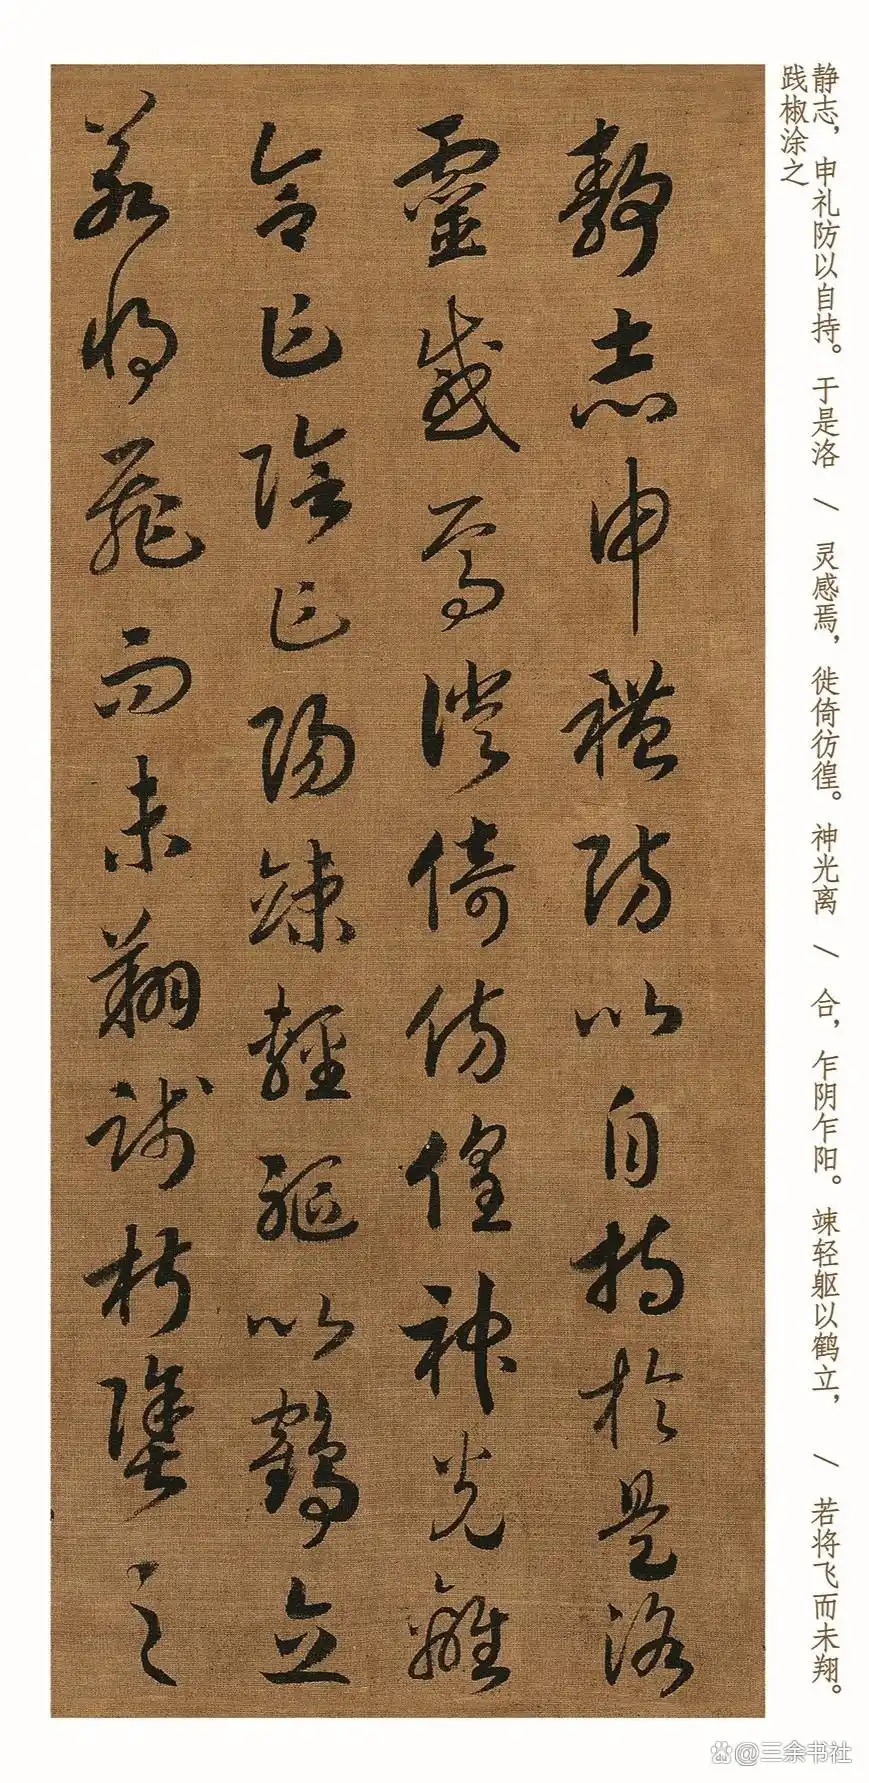 静志，申礼防以自持。于是洛 / 灵感焉，徙倚彷徨。神光离 / 合，乍阴乍阳。竦轻躯以鹤立， / 若将飞而未翔。
践椒涂之
靜志申禮防以自持於是洛
靈感焉徙倚傍偟神光離
合乍陰乍陽竦輕軀以鶴立
若將飛而未翔踐椒塗之
@三余书社